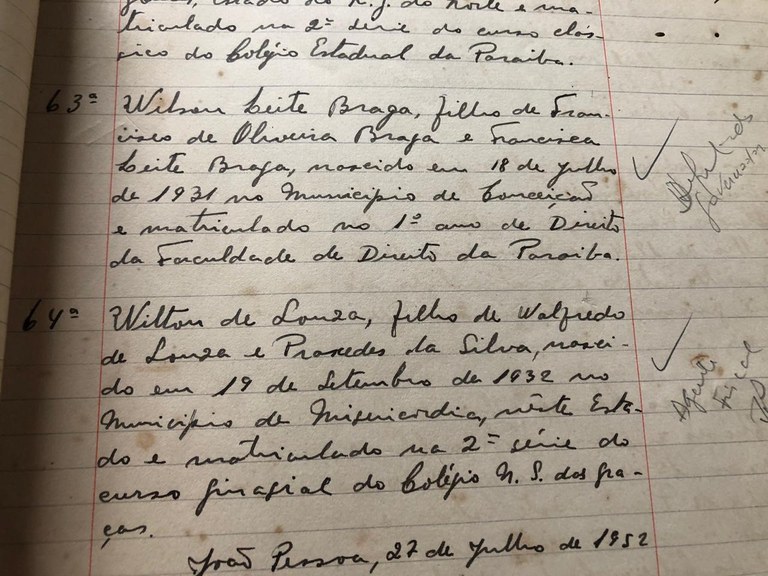 Estado do R. G. do Norte e ma-
triculado na 2ª série do curso clás-
sico do Colégio Estadual da Paraiba.
63ª Wilson Leite Braga, filho de Fran-
cisco de Oliveira Braga e Francisca
Leite Braga, nascido em 18 de Julho
de 1931 no Municipio de Conceição
e matriculado no 1º ano de Direito
da Faculdade de Direito da Paraiba.
Deputado
Governador
64ª Wilton de Souza, filho de Walfredo
de Souza e Praxedes da Silva, nasci-
do em 19 de Setembro de 1932 no
Municipio de Misericordia, nêste Esta-
do e matriculado na 2ª série do
curso ginasial do Colégio N. S. das Gra-
ças.
Agente
Fiscal
João Pessoa, 27 de Julho de 1952